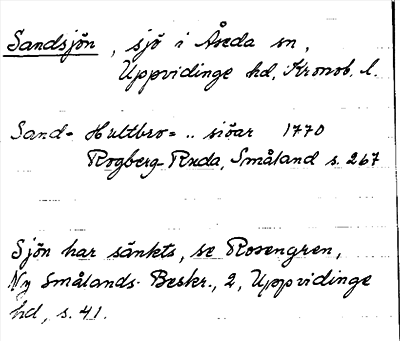 Sandsjön, sjö i Åseda sn,
Uppvidinge hd, Kronob. l.
Sand- Hultbro- .. siöar 1770
Rogberg-Ruda, Småland s. 267
Sjön har sänkts, se Rosengren,
Ny Smålands Beskr., 2, Uppvidinge
hd, s. 41.